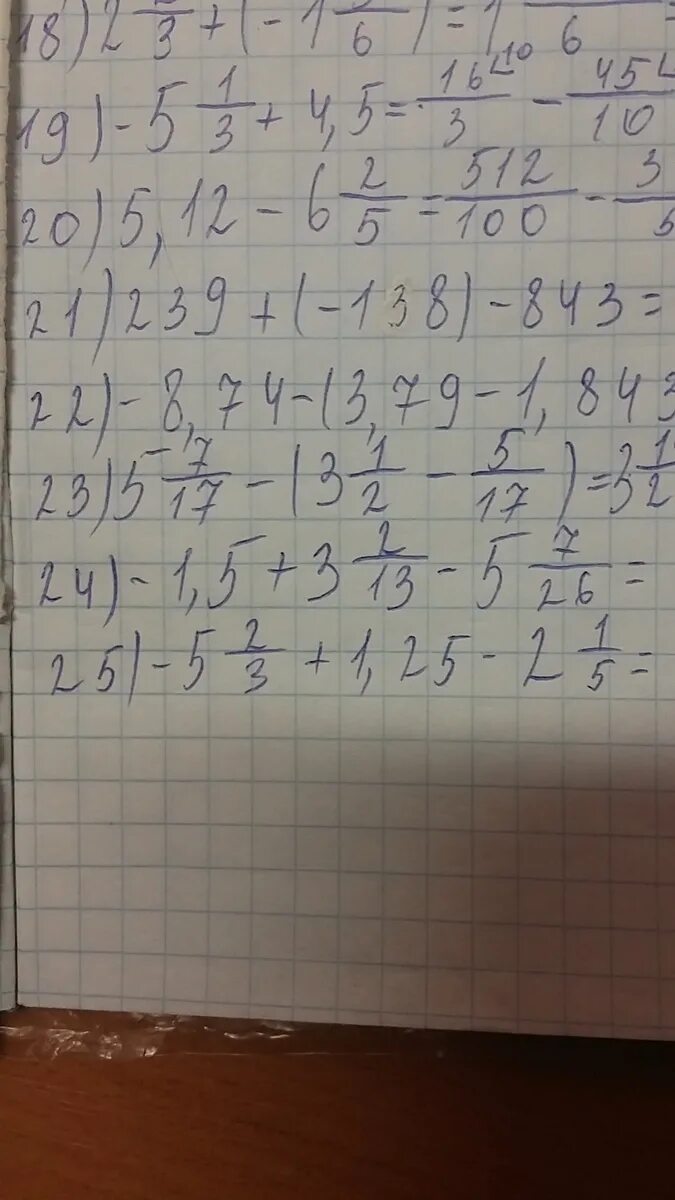 18) 2 2/3 + (-1 5/6) = 1 /6 =
19) -5 1/3 + 4,5 = 16∟10/3 - 45∟/10
20) 5,12 - 6 2/5 = 512/100 - 3/5
21) 239 + (-138) - 843 =
22) -8,74 - (3,79 - 1,843
23) 5 7/17 - (3 1/2 - 5/17) = 3 1/2
24) -1,5 + 3 2/13 - 5 7/26 =
25) -5 2/3 + 1,25 - 2 1/5 =